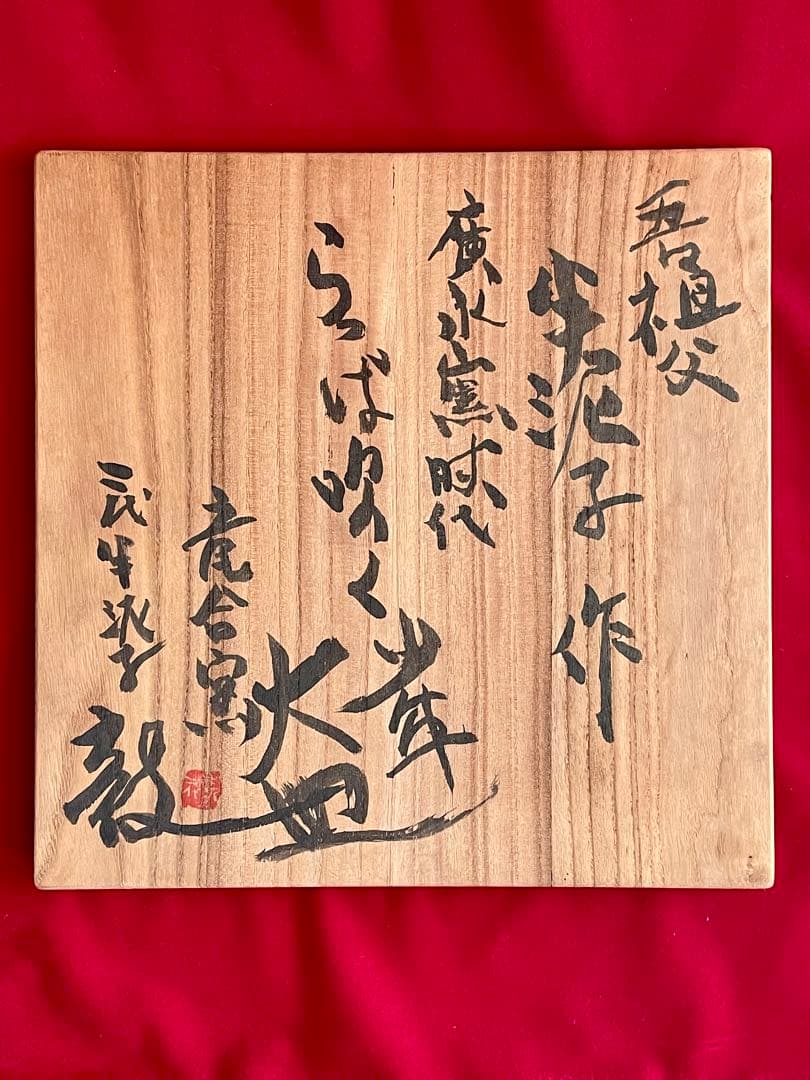 吾祖父
半泥子 作
廣永窯時代
らっぱ吹く
火皿
窯
三代 半泥子
毅